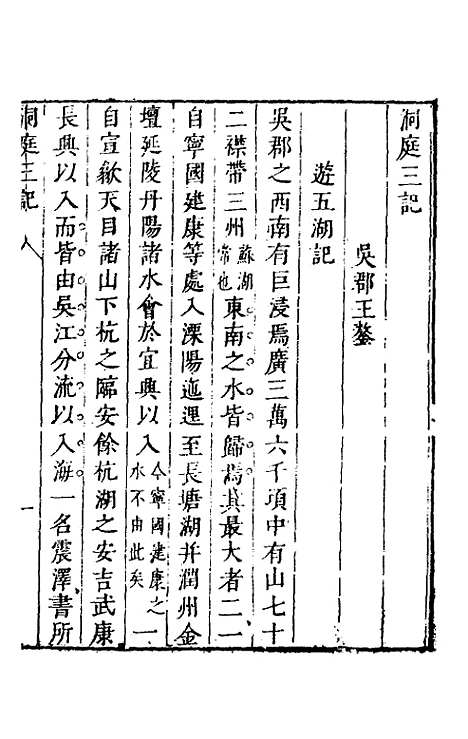 洞庭三記
吳郡王鏊
遊五湖記
吳郡之西南有巨浸焉廣三萬六千頃中有山七十
二襟帶三州蘇湖常也東南之水皆歸焉其最大者二一
自寧國建康等處入溧陽迤邐至長塘湖并潤州金
壇延陵丹陽諸水會於宜興以入今寧國建康之水不由此矣一
自宣歙天目諸山下杭之臨安餘杭湖之安吉武康
長興以入而皆由吳江分流以入海一名震澤書所
洞庭三記 一